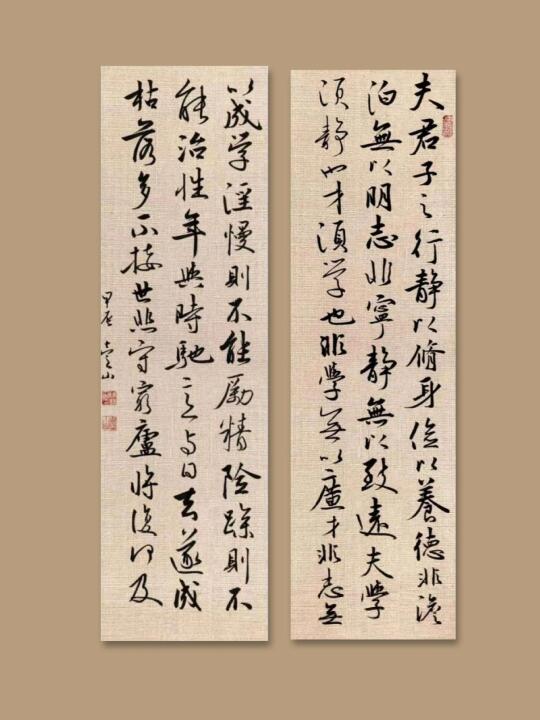 夫君子之行静以脩身俭以養德非澹
泊無以明志非寧静無以致遠夫學
須静也才須学也非學無以廣才非志無
以成学淫慢則不能勵精险躁則不
能治性年與時馳意与日去遂成
枯落多不接世悲守窮廬將復何及
甲辰